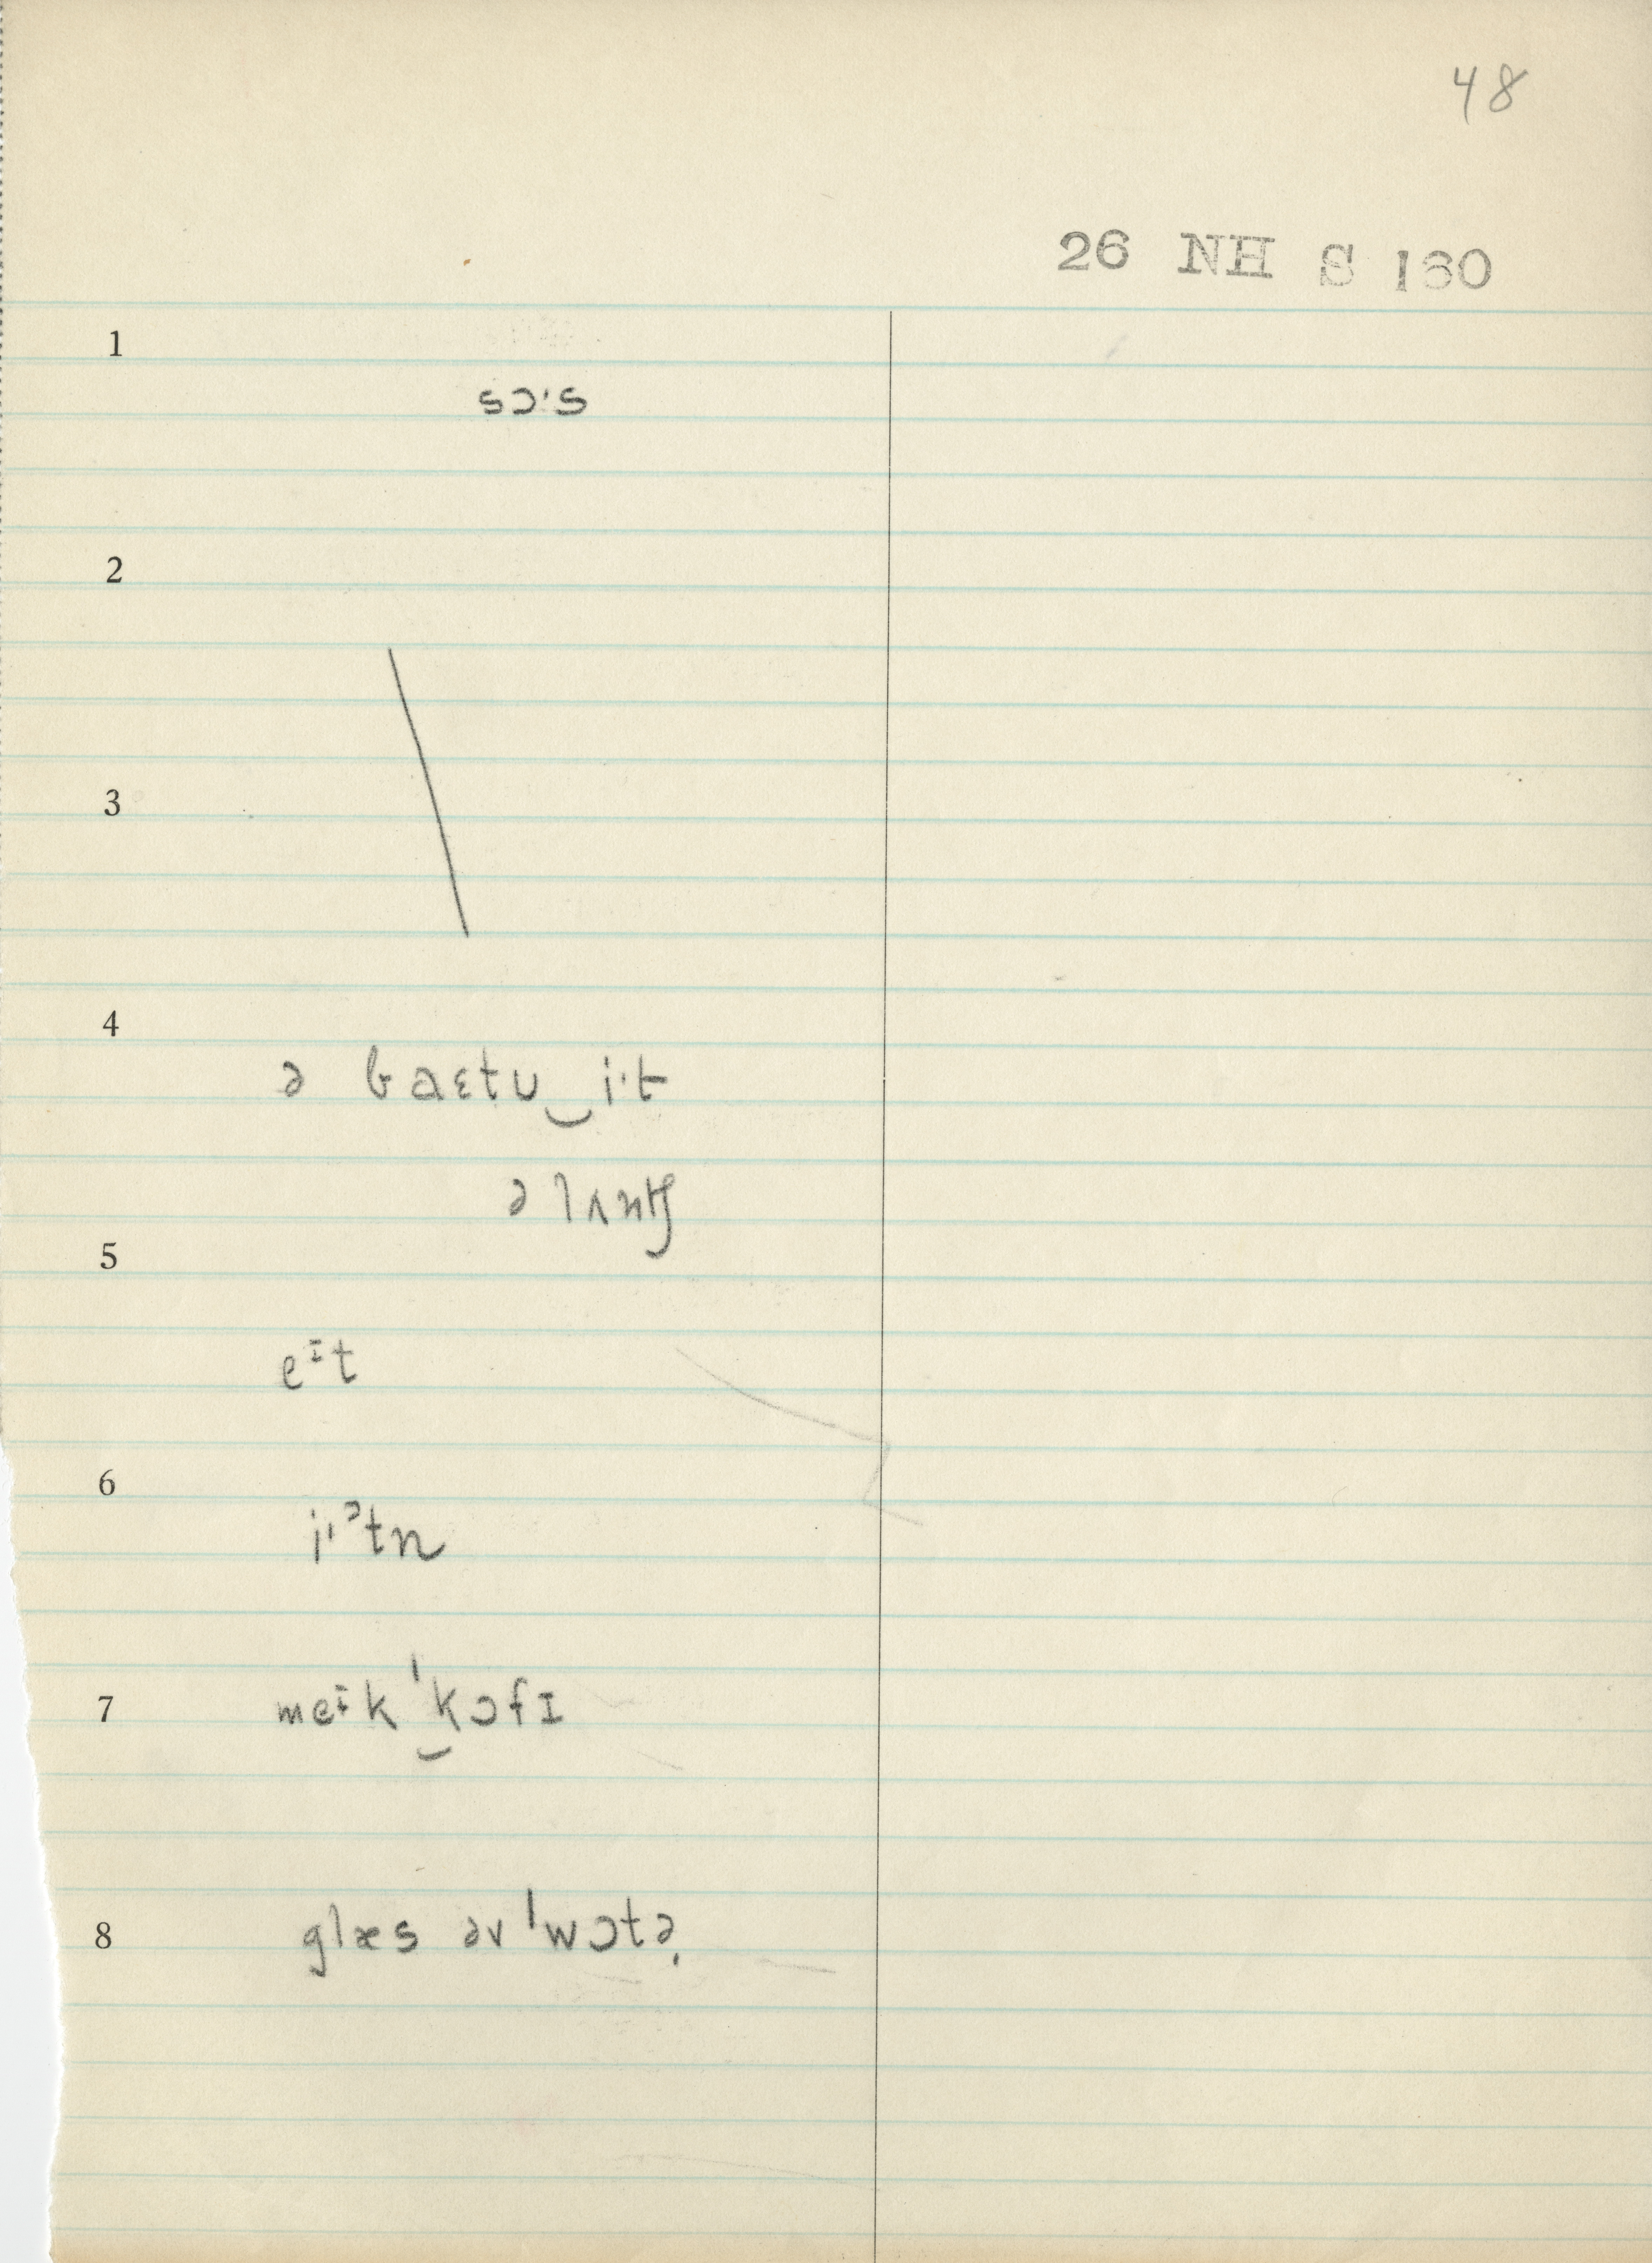 48
26 NH S 160
1
sɔˑs
2
3
4
ə baɛtʊ‿iˑt
ə lʌntʃ
5
eɪt
6
iˑᵊtn
7
meɪk‿ˈkɔfɪ
8
glæs əv ˈwɔtə̣